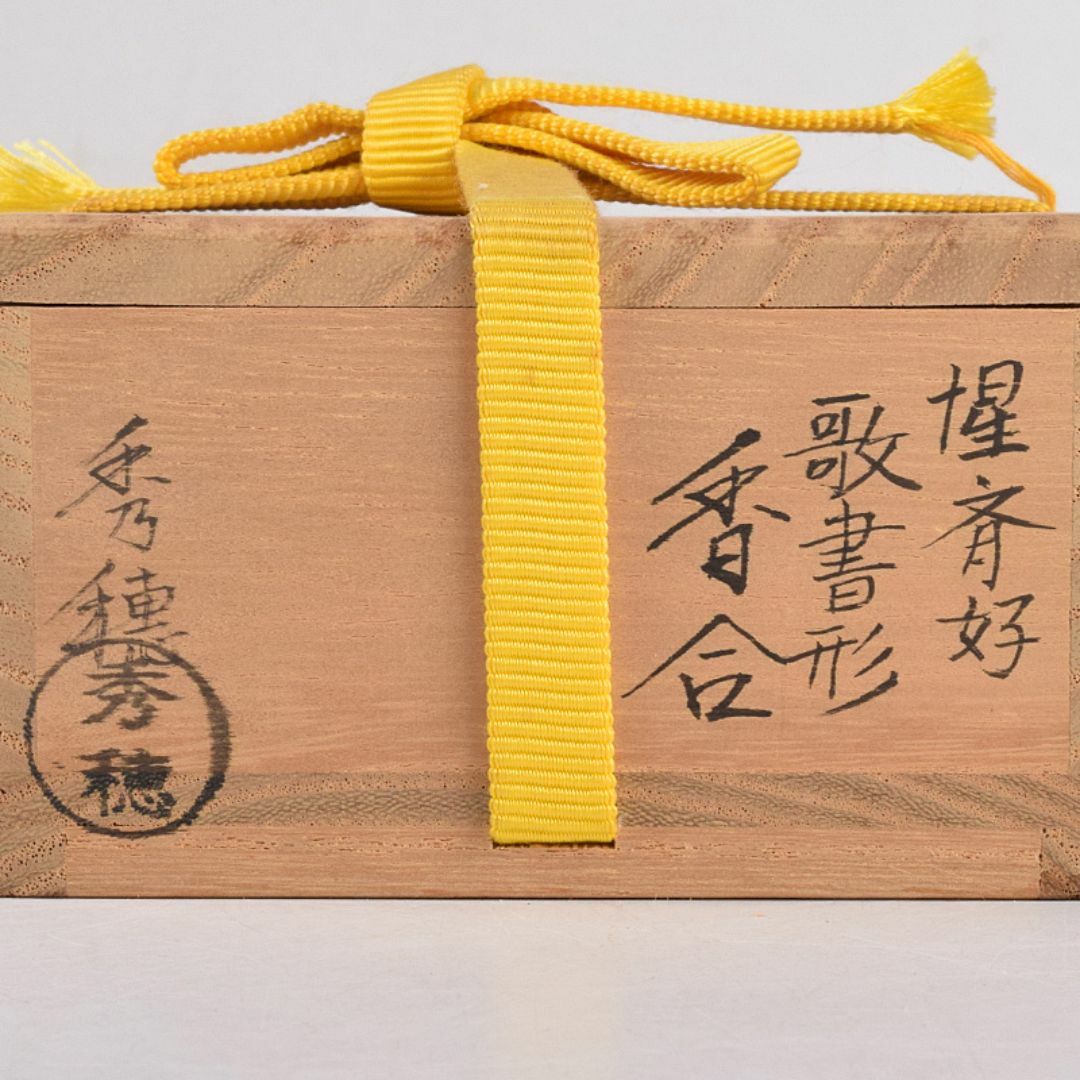 惺斉好
歌書形
香合
秀穂
秀穂